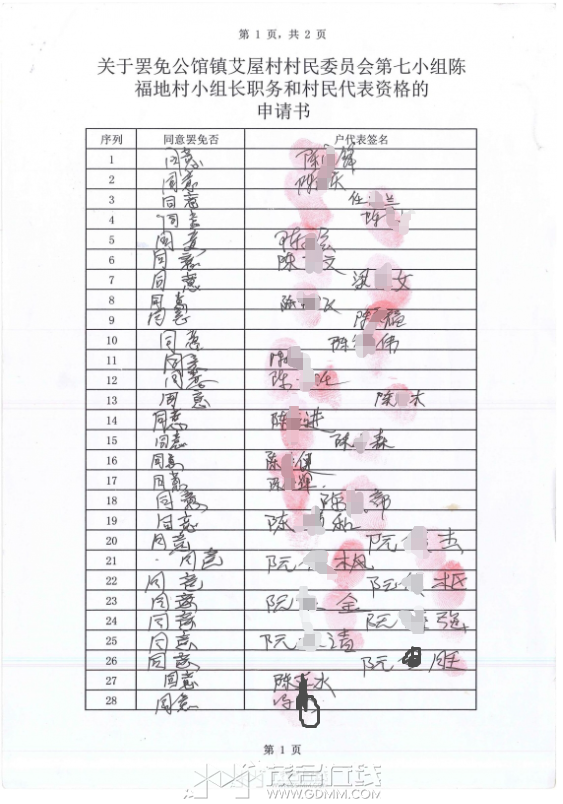 第 1 页，共 2 页
关于罢免公馆镇艾屋村村民委员会第七小组陈
福地村小组长职务和村民代表资格的
申请书
序列 同意罢免否 户代表签名
1 同意 陈 锋
2 同意 陈 东
3 同意 任 兰
4 同意 陈
5 同意 陈
6 同意 陈 文
7 同意 女
8 同意 陈
9 同意 陈
10 同意 陈 伟
11 同意 陈
12 同意 陈
13 同意 陈 木
14 同意 陈 进
15 同意 陈 森
16 同意 陈
17 同意 陈 辉
18 同意 陈
19 同意 陈
20 同意 阮 杰
21 同意 阮 枫
22 同意 阮
23 同意 阮 金
24 同意 阮 强
25 同意 阮 清
26 同意 阮 旺
27 同意 陈 水
28 同意
第 1 页
茂名在线
WWW.GDMM.COM